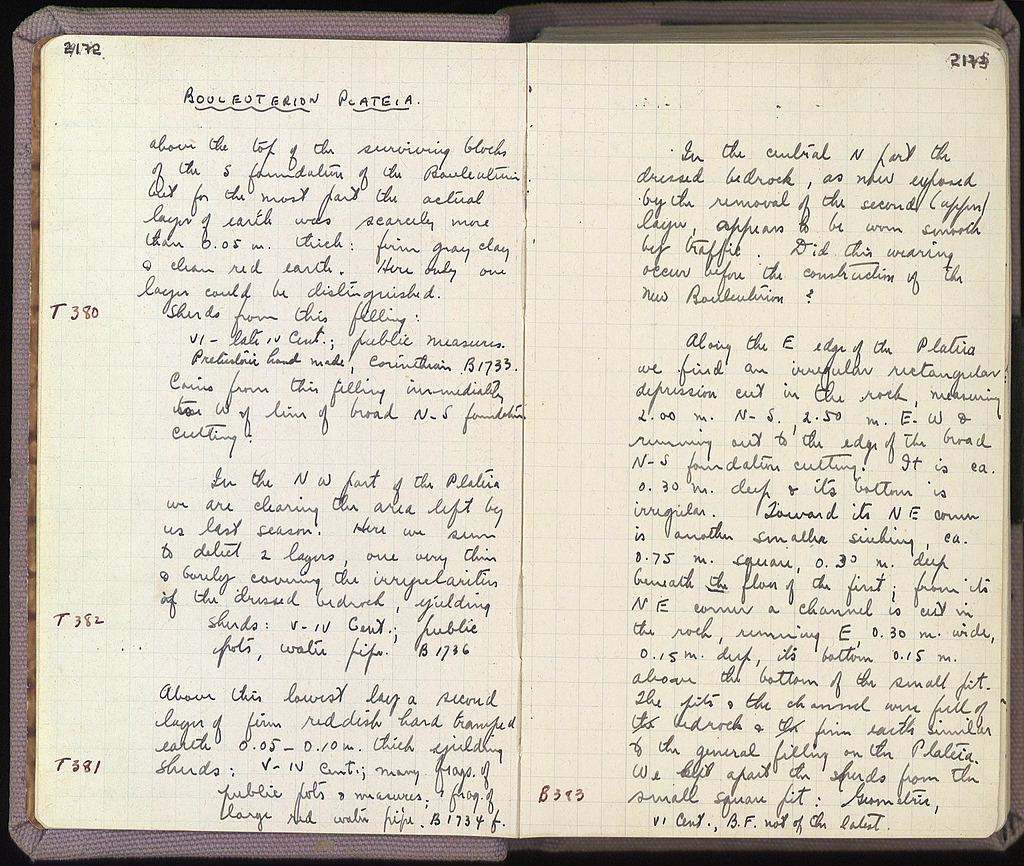 2172
BOULEUTERION PLATEIA.
above the top of the surviving blocks
of the S foundation of the Bouleuterion
but for the most part the actual
layer of earth was scarcely more
than 0.05 m. thick: firm gray clay
& clean red earth. Here only one
layer could be distinguished.
T 380
Sherds from this filling:
VI - late IV Cent.; public measures.
Prehistoric hand made, Corinthian B1733.
Coins from this filling immediately
W of line of broad N-S foundation
cutting:
In the N W part of the Plateia
we are clearing the area left by
us last season. Here we seem
to detect 2 layers, one very thin
& barely covering the irregularities
of the dressed bedrock, yielding
T 382
sherds: V-IV Cent.; public
pots, water pipe. B 1736
Above this lowest lay a second
layer of firm reddish hard tramped
earth 0.05 - 0.10 m. thick yielding
T 381
sherds: V-IV Cent.; many frags. of
public pots & measures; frag. of
large red water pipe. B 1734 f.
2173
In the central N part the
dressed bedrock, as now exposed
by the removal of the second (upper)
layer, appears to be worn smooth
by traffic. Did this wearing
occur before the construction of the
New Bouleuterion?
Along the E edge of the Plateia
we find an irregular rectangular
depression cut in the rock, measuring
2.00 m. N-S., 2.50 m. E-W &
running out to the edge of the broad
N-S foundation cutting. It is ca.
0.30 m. deep & its bottom is
irregular. Toward its N E corner
is another smaller sinking, ca.
0.75 m. square, 0.30 m. deep
beneath the floor of the first; from its
N E corner a channel is cut in
the rock, running E, 0.30 m. wide,
0.15 m. deep, its bottom 0.15 m.
above the bottom of the small pit.
The pits & the channel were full of
bedrock & firm earth similar
to the general filling on the Plateia.
We kept apart the sherds from the
B 383
small square pit: Geometric,
VI Cent., B.F. not of the latest.